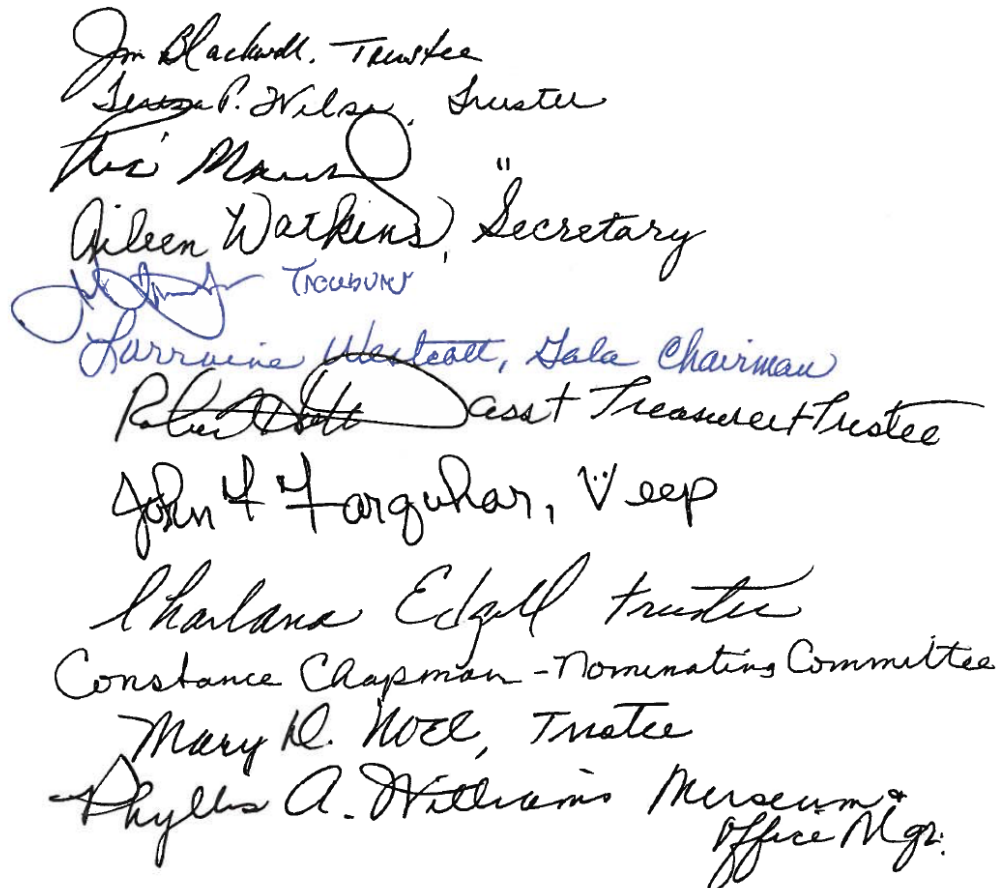 Jim Blackwell, Trustee
Teresa P. Wilson, Trustee
"
Aileen Watkins, Secretary
Treasurer
Lorraine Westcott, Gala Chairman
Robert Asst Treasurer + Trustee
John F Farquhar, Veep
Charlana Edgell trustee
Constance Chapman - Nominating Committee
Mary D. Noel, Trustee
Phyllis A. Williams Museum &
Office Mgr.